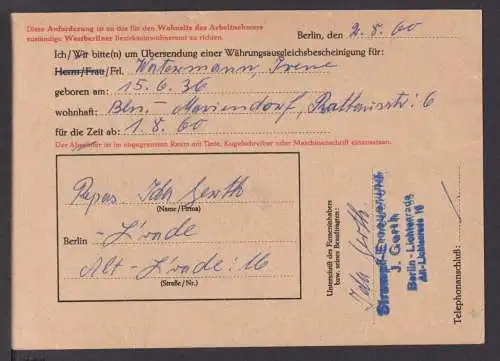 Diese Anforderung ist an das für den Wohnsitz des Arbeitnehmers
zuständige Westberliner Bezirkseinwohneramt zu richten.
Berlin, den 2.8.60
Ich/Wir bitte(n) um Übersendung einer Währungsausgleichsbescheinigung für:
Herrn/Frau/Frl. Watermann, Irene
geboren am: 15.6.36
wohnhaft: Bln.-Mariendorf, Rathausstr: 6
für die Zeit ab: 1.8.60
Der Absender ist im umgrenzten Raum mit Tinte, Kugelschreiber oder Maschinenschrift einzusetzen.
Repas. Ida Gerth
(Name/Firma)
Berlin
Alt-Lrade: 16
(Straße/Nr.)
Unterschrift des Firmeninhabers
bzw. seines Beauftragten:
Ida Gerth
J. Gerth
Berlin-Lichtenrade
Alt-Lichtenrade 16
Telephonanschluß: